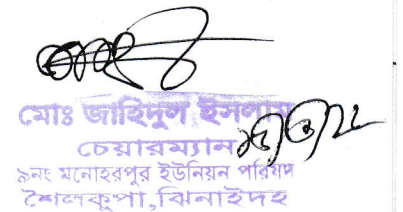 মোঃ জাহিদুল ইসলাম
চেয়ারম্যান
৯নং মনোহরপুর ইউনিয়ন পরিষদ
শৈলকূপা, ঝিনাইদহ